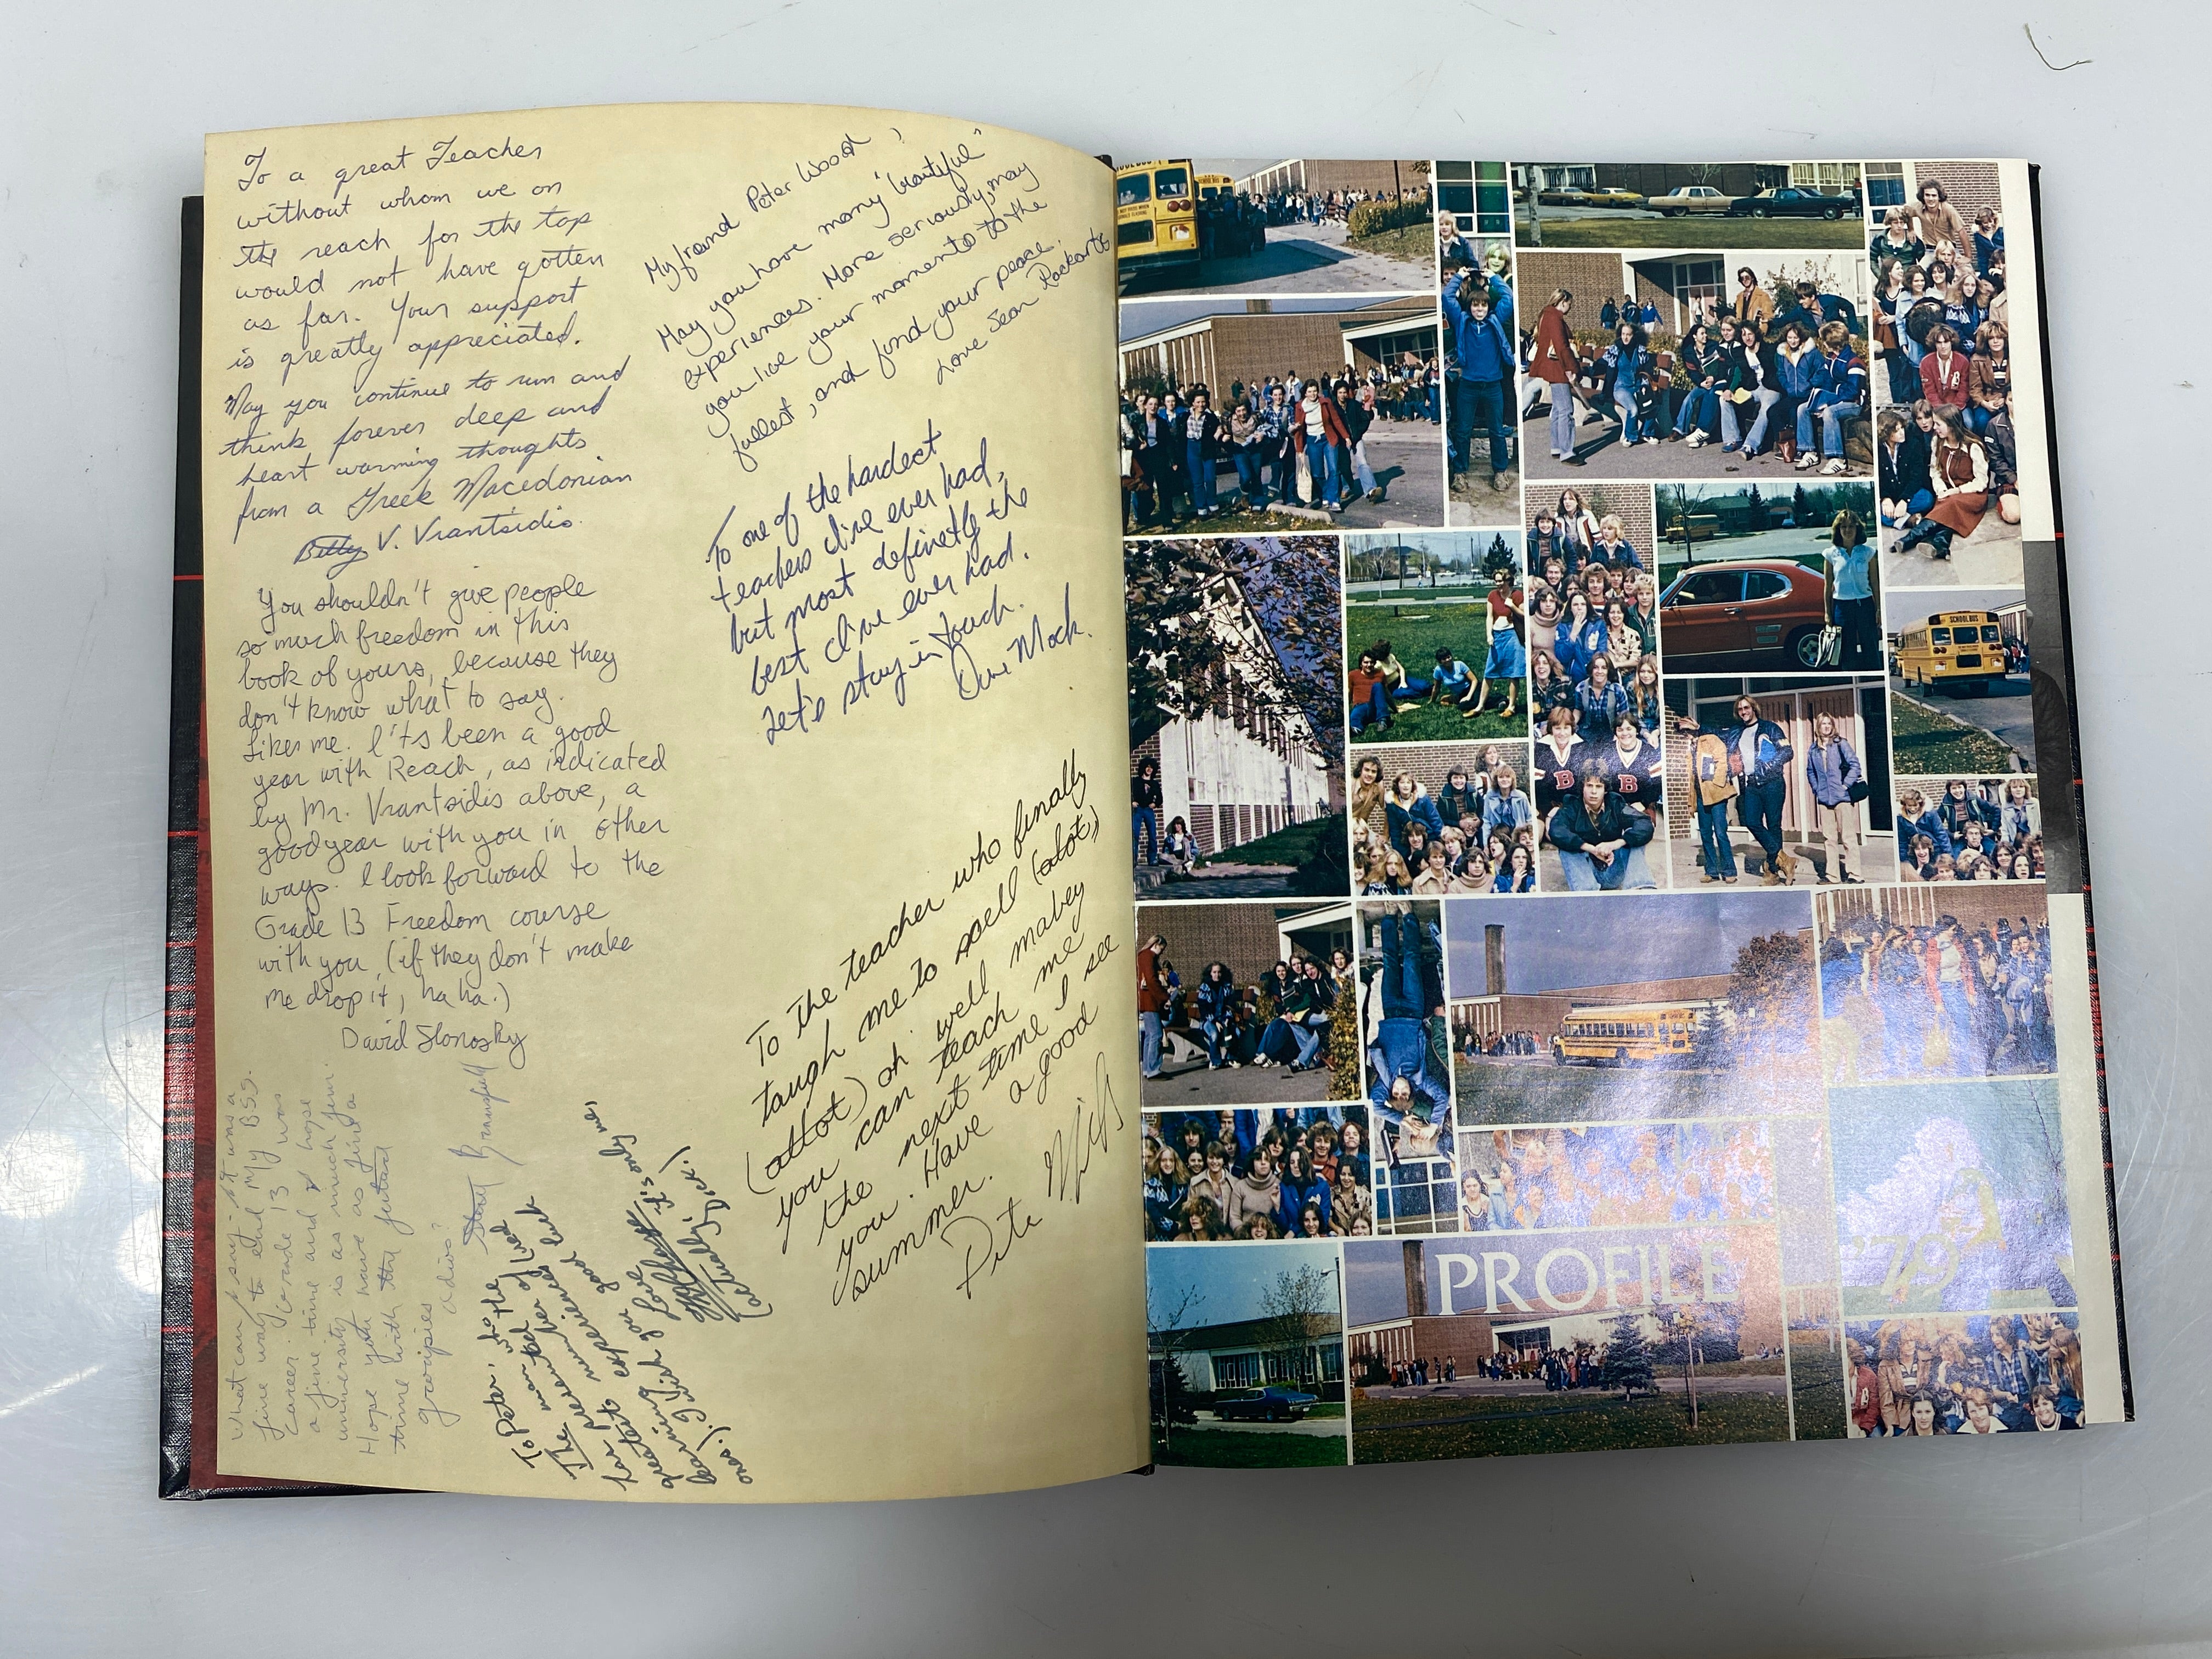 To a great Teacher
without whom we on
the reach for the top
would not have gotten
as far. Your support
is greatly appreciated.
May you continue to run and
think forever deep and
heart warming thoughts
from a Greek Macedonian
V. Vrantsidis.
You shouldn't give people
so much freedom in this
book of yours, because they
don't know what to say.
Likes me. I'ts been a good
year with Reach, as indicated
by Mr. Vrantsidis above, a
good year with you in other
ways. I look forward to the
Grade 13 Freedom course
with you (if they don't make
me drop it, ha ha.)
David Slonosky
What can I say - it was a
fine way to end my BSS.
career. Grade 13 was
a fine time and I hope
university is as much fun.
Hope you have as fine a
time with the
groupies
adios?
To Peter, who the
man tel of luck
The perennberies luck
has
greatest experience good
you love
learning
(actually Dick.)
My friend Peter Wood,
May you have many "beautiful"
experiences. More seriously, may
you live your moments to the
fullest, and find your peace.
Love Sean
To one of the hardest
teachers I've ever had,
but most definetly the
best I've ever had.
Let's stay in touch.
Dave Mock.
To the teacher who finally
taugh me to spell (alot)
(allot) oh well mabey
you can teach me
the next time I see
you. Have a good
summer.
Pete
SCHOOL BUS
SCHOOL BUS
B B
PROFILE '79